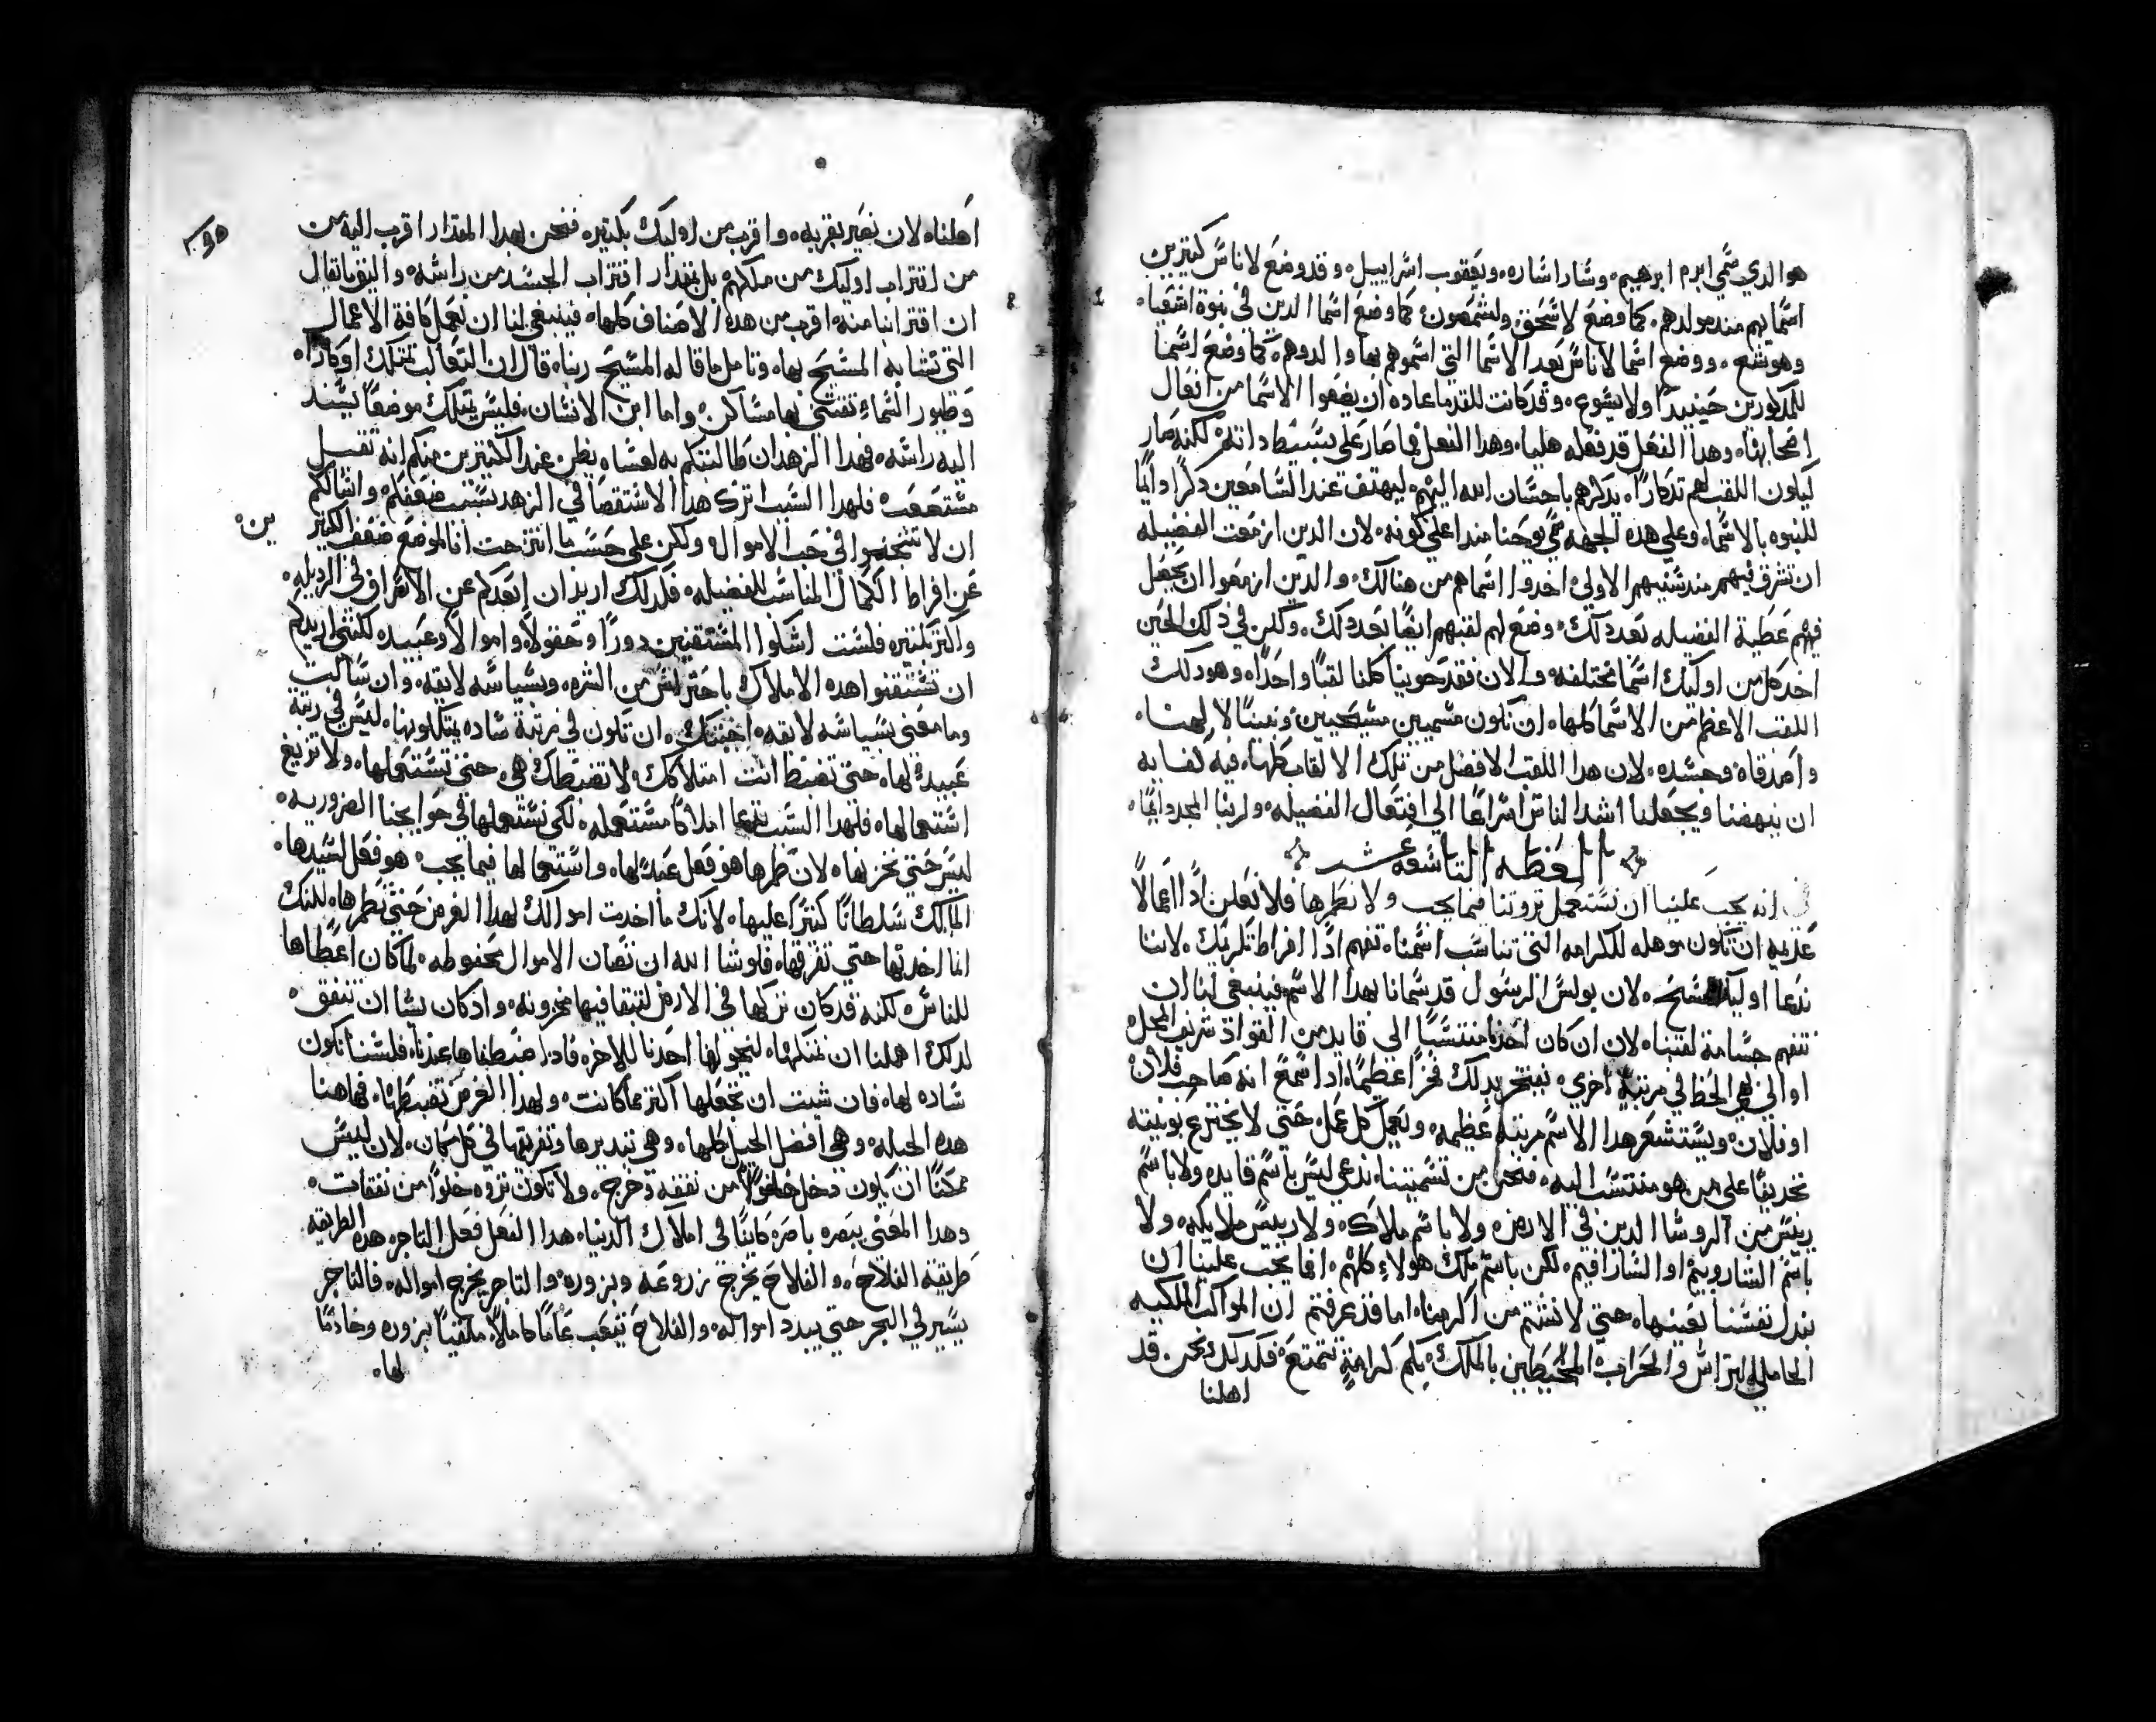 هو الدي سمي ابرم ابرهيم، وسارا ساره، ويعقوب اسراييل، وقد وضع لاناس كتيرين
اسمايهم مند مولدهم، كما وضع لاسحق، ولشمصون، كما وضع اسما الدين في نبوة اشعيا،
وهوشع، ووضع اسما لاناس بعد الاسما التي اسموهم بها والدوهم، كما وضع اسما
للمدكورين حينيدا ولايشوع، وقد كانت للقدما عاده ان يضعوا الاسما من افعال
اصحابها، وهدا الفعل قد فعله هليا، وهدا الفعل فما صار على بسيط داته، لكنه صار
ليكون اللقب لهم تدكارا، يدكرهم باحسان الله اليهم، ليهتف عند السامعين دكرا دايما
للنبوه بالاسما، وعلي هده الجهه سمي يوحنا مندا على كونه، لان الدين ازمعت الفضيله
ان تشرق فيهم مند سنيهم الاولي، اخدوا اسماهم من هنالك، والدين ازمعوا ان يجعل
فيهم عطية الفضيله بعد دلك، وضع لهم لقبهم ايضا بعد دلك، ولكن في دلك الحين
اخد كل من اوليك اسما مختلفه، والان فقد حوينا كلنا لقبا واحدا، وهو دلك
اللقب الاعظم من الاسما كلها، ان نكون مسميين مسيحيين، وبنينا لالهنا،
واصدقاه وجسده، لان هدا اللقب الافضل من تلك الالقاب كلها، فيه كفايه
ان ينهضنا ويجعلنا اشد الناس اسراعا الي افتعال الفضيله، ولربنا المجد دايما،
العظه التاسعه عشر
في انه يجب علينا ان نستعمل تروتنا فيما يجب ولا نطمرها فلا نعلمن ادا اعمالا
عديمه ان تكون موهله للكرامه التي تناسب اسمنا، تفهم ادا افراط تكريمك، لاننا
ندعا اوليك المسيح، لان بولس الرسول قد سمانا بهدا الاسم، فينبغي لنا ان
نتفهم جسامة لقبنا، لان ان كان احدنا منتسبا الي قايد من القواد شريف المحل
او الي بهي الحظ في مرتبه اخري، يفتخر بدلك فخرا عظيما، ادا سمع انه صاحب فلان
او فلان، ويستشعر هدا الاسم مرتبه عظيمه، ويعمل كل عمل، حتى لا يخترع بونيته
تحريفا علي من هو منتسب اليه، فنحن من تسميتنا، ندعي ليس باسم قايد، ولا باسم
رييس من الروسا الدين في الارض، ولا باسم ملاك، ولا رييس ملايكه، ولا
باسم الشاروبيم، او السارافيم، لكن باسم ملك هولاء كلهم، افما يجب علينا ان
نبدل نفسنا بعينها، حتي لا نشتم من اكرمنا، اما قد عرفتم ان المواكب الملكيه
الحامله التراس والحراب، المحيطين بالملك، بكم كرامةٍ تتمتع، فكدلك نحن قد
اهلنا
٣٩٥
اهلنا، لان نصير بقربه، واقرب من اوليك بكتير، فنحن بهدا المقدار اقرب اليه من
من اقتراب اوليك من ملكهم، بل بمقدار اقتراب الجسد من راسه، واليق ما يقال
ان اقترابنا منه، اقرب من هده الاصناف كلها، فينبغي لنا ان نعمل كافة الاعمال
التي تشابه المسيح بها، وتامل ما قاله المسيح ربنا، قال ان التعالب تمتلك اوكارا،
وطيور السماء تقتني بها مساكن، واما ابن الانسان، فليس يمتلك موضعا يسند
اليه راسه، فهدا الزهد ان طالبتكم به لعساه يظن عند الكتيرين منكم انه تقيل
مستصعب، فلهدا السبب اترك هدا الاستقصا في الزهد بسبب ضعفكم، واسالكم
ان لا تتجنوا في حب الاموال، ولكن علي حسب ما انتزحت انا لموضع ضعف الكتيرين،
عن افراط الكمال المناسب الفضيله، فكدلك اريد ان ابعدكم عن الاغراق في الرديله،
واكتر بكتير، فلست اشكوا المستقنين دورا وحقولا، واموالا وعبيد، لكنني اريدكم
ان تستقنوا هده الاملاك باحتراس من الشره، وبسياسه لايقه، وان سالت
وما معني بسياسه لايقه، اجبتك، ان تكون في مرتبة ساده يمتلكونها، ليس في رتبة
عبيد لها، حتي تضبط انت املاكك، لا تضبطك هي، حتي تستعملها، ولا تزيغ
استعمالها، فلهدا السبب تدعا املاكا مستعمله، لكي نستعملها في حوايجنا الضروريه،
ليس حتي نخزنها، لان طمرها هو فعل عبد لها، واستعمالها فيما يجب، هو فعل لسيدها،
المالك سلطانا كتيرا عليها، لانك ما اخدت اموالك لهدا الغرض حتي تطمرها، لكنك
انما اخدتها حتي تفرقها، فلو شا الله ان تصان الاموال محفوطه، لما كان اعطاها
للناس، لكنه قد كان تركها في الارض لتبقا فيها مخزونه، واد كان يشا ان تنفق،
لدلك اهلنا ان نمتلكها، لنحولها احدنا للاخر، فادا ضبطناها عندنا، فلسنا نكون
ساده لها، فان شيت ان تجعلها اكتر مما كانت، ولهدا الغرض تضبطها، فهاهنا
هده الحيله، وهي افضل الحيل كلها، وهي تبديرها وتفريقها في كل مكان، لان ليس
ممكنا ان يكون دخل خلوا من نفقه وخرج، ولا تكون تروه خلوا من نفقات،
وهدا المعني يبصره باصره كاينا في املاك الدنيا، هدا الفعل فعل التاجر، هده الطريقه
طريقة الفلاح، والفلاح يخرج زروعه وبزوره، والتاجر يخرج امواله، فالتاجر
يسير في البحر حتي يبدد امواله، والفلاح يتعب عاما كاملا، ملقيا بزوره وخادما
لها،